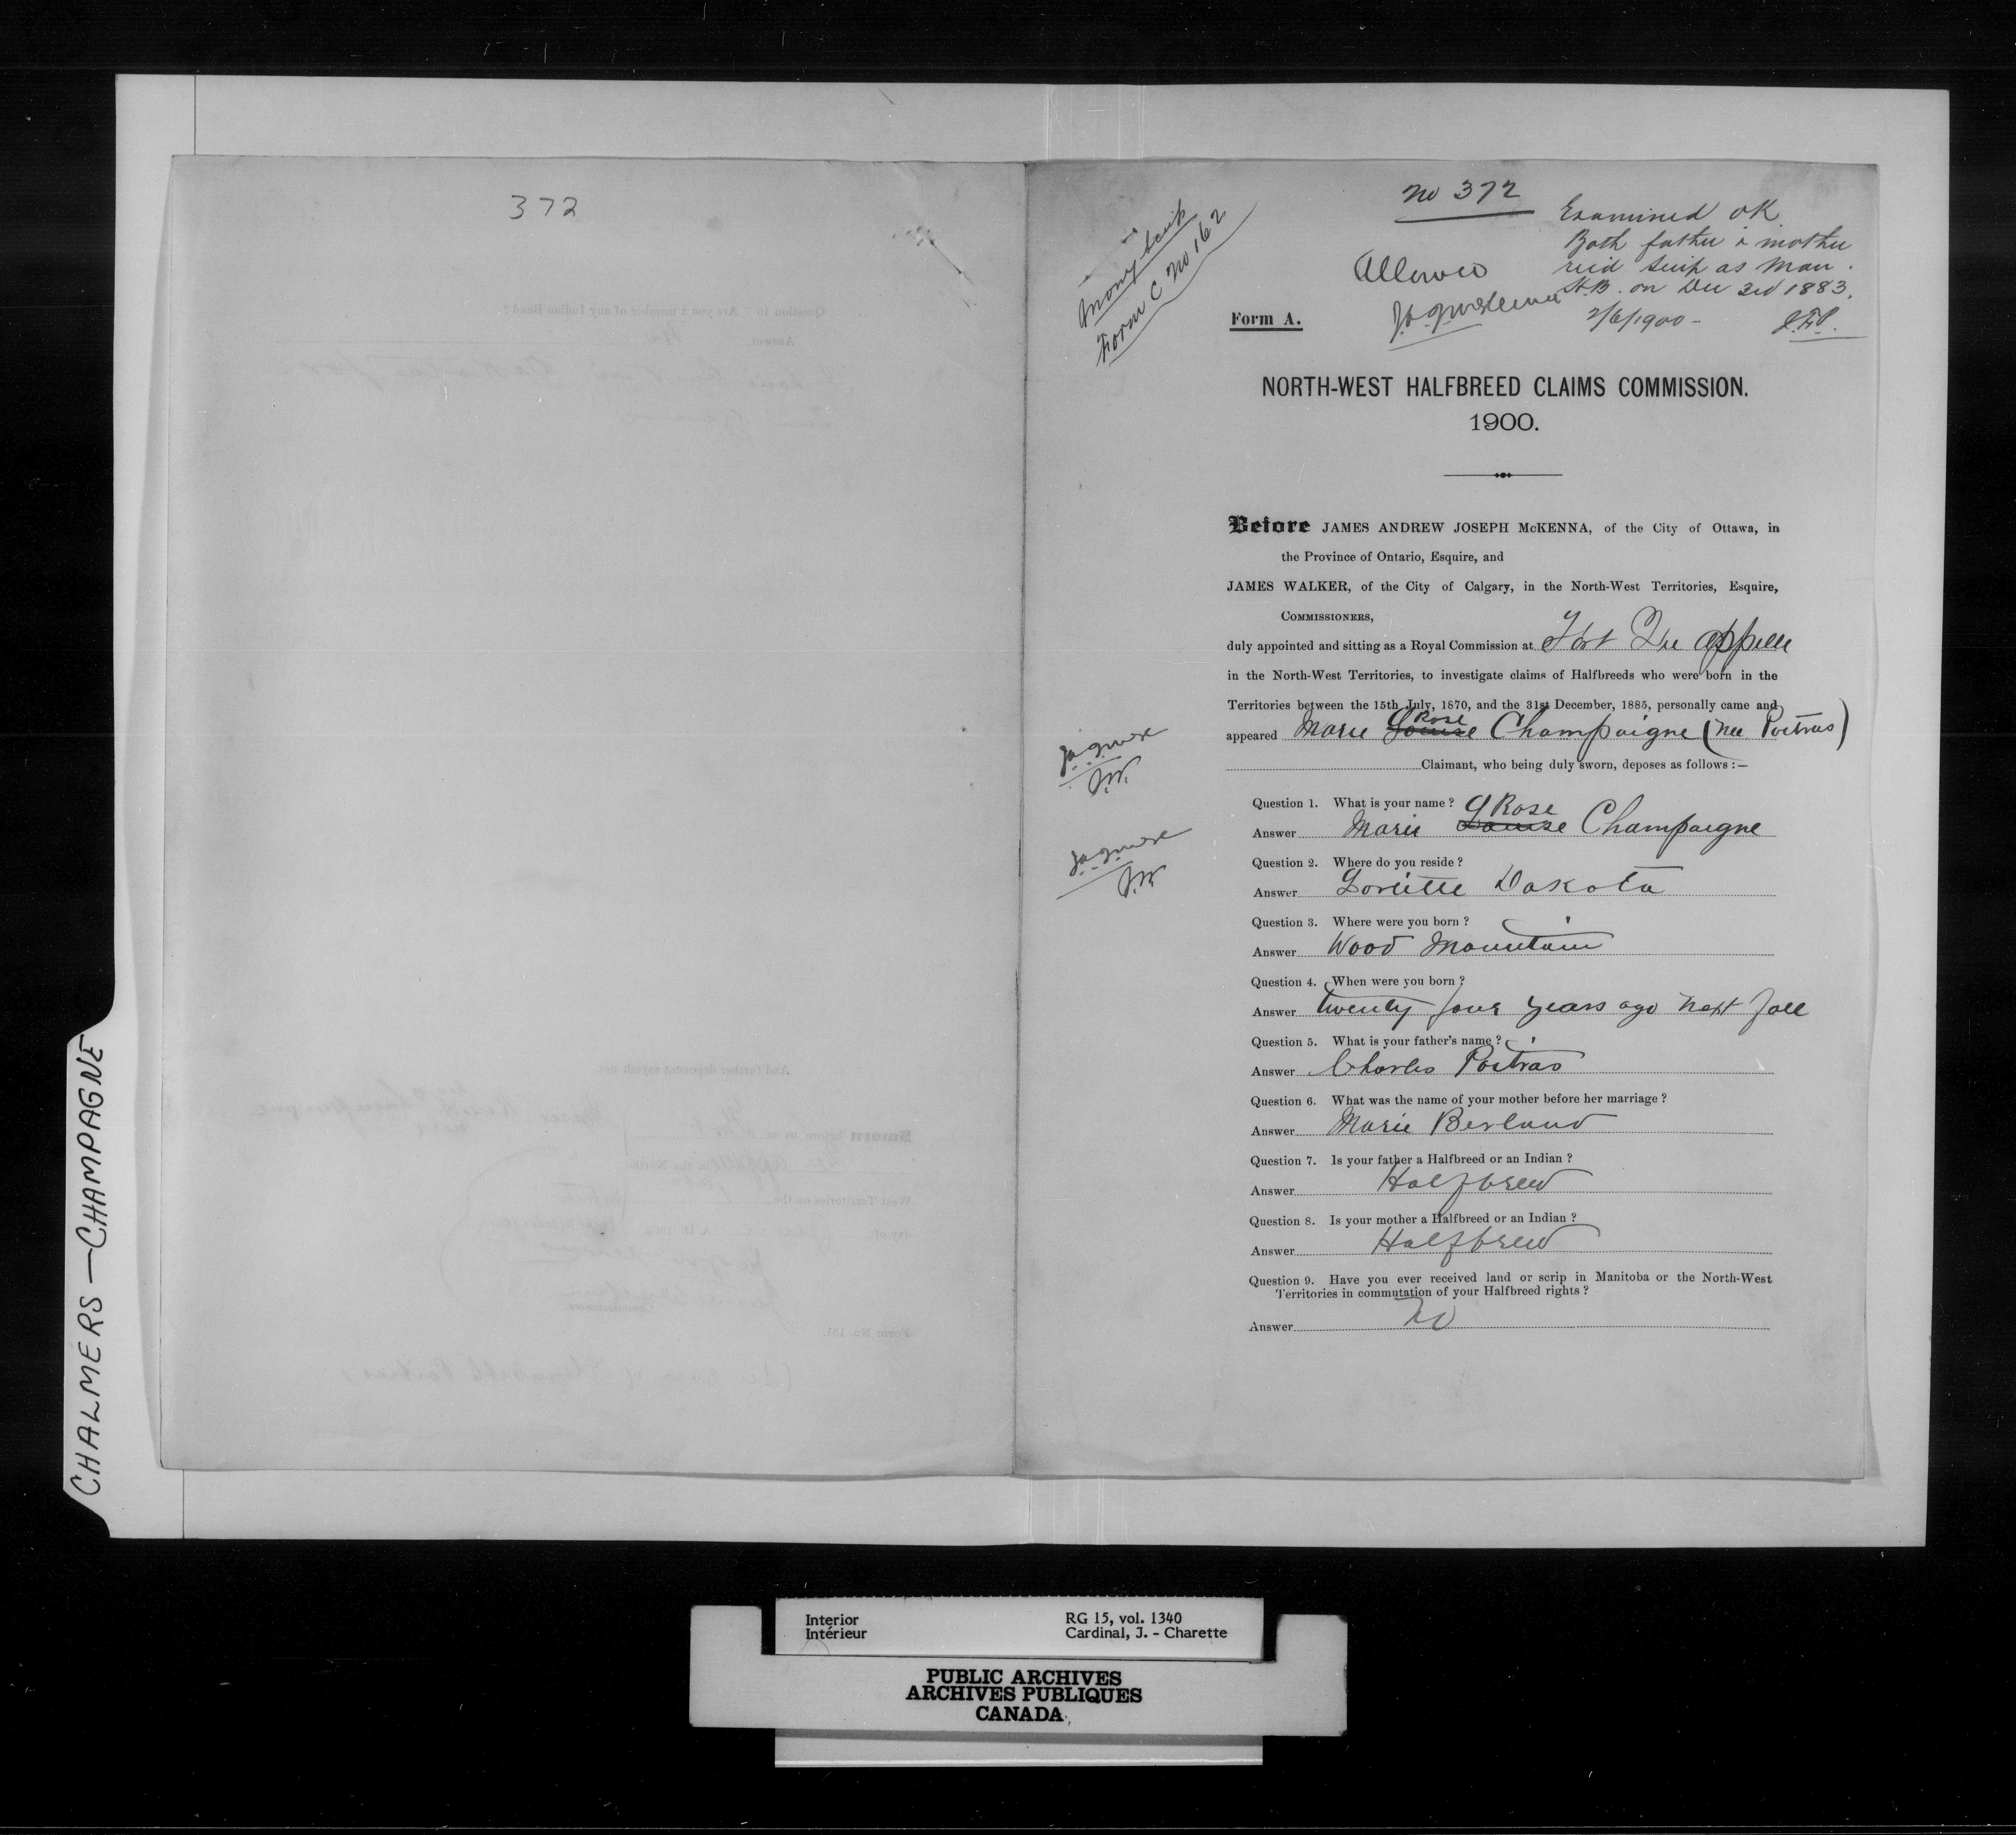 372
No 372
Examined OK
Both father & mother
rec'd scrip as Man.
H.B. on Dec 3rd 1883.
2/6/1900 -
Allowed
J.A.J. McKenna
Money Scrip
Form C No 162
Form A.
NORTH-WEST HALFBREED CLAIMS COMMISSION.
1900.
Before JAMES ANDREW JOSEPH McKENNA, of the City of Ottawa, in
the Province of Ontario, Esquire, and
JAMES WALKER, of the City of Calgary, in the North-West Territories, Esquire,
COMMISSIONERS,
duly appointed and sitting as a Royal Commission at Fort Qu'appelle
in the North-West Territories, to investigate claims of Halfbreeds who were born in the
Territories between the 15th July, 1870, and the 31st December, 1885, personally came and
appeared Marie Louise Rose Champaigne (nee Poitras)
Claimant, who being duly sworn, deposes as follows :—
J.A.J. McK
J.W.
Question 1. What is your name ?
Answer Marie Louise Rose Champaigne
J.A.J. McK
J.W.
Question 2. Where do you reside ?
Answer Dakota
Question 3. Where were you born ?
Answer Wood Mountain
Question 4. When were you born ?
Answer twenty four years ago next fall
Question 5. What is your father's name ?
Answer Charles Poitras
Question 6. What was the name of your mother before her marriage ?
Answer Marie Berland
Question 7. Is your father a Halfbreed or an Indian ?
Answer Halfbreed
Question 8. Is your mother a Halfbreed or an Indian ?
Answer Halfbreed
Question 9. Have you ever received land or scrip in Manitoba or the North-West
Territories in commutation of your Halfbreed rights ?
Answer No
CHALMERS — CHAMPAGNE
Interior RG 15, vol. 1340
Intérieur Cardinal, J. - Charette
PUBLIC ARCHIVES
ARCHIVES PUBLIQUES
CANADA